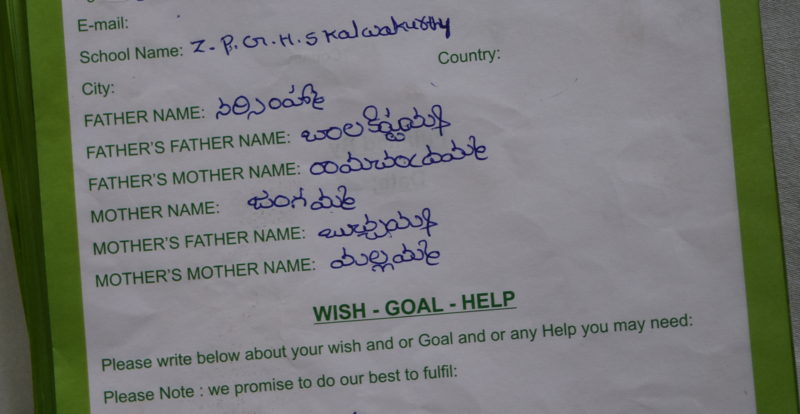 E-mail:
School Name: Z.P.G.H.S Kalwakurthy
Country:
City:
FATHER NAME: నర్సింహ్మ
FATHER'S FATHER NAME: బాలకిష్టయ్య
FATHER'S MOTHER NAME:
MOTHER NAME: జంగమ్మ
MOTHER'S FATHER NAME: బుచ్చయ్య
MOTHER'S MOTHER NAME: మల్లమ్మ
WISH - GOAL - HELP
Please write below about your wish and or Goal and or any Help you may need:
Please Note : we promise to do our best to fulfil: